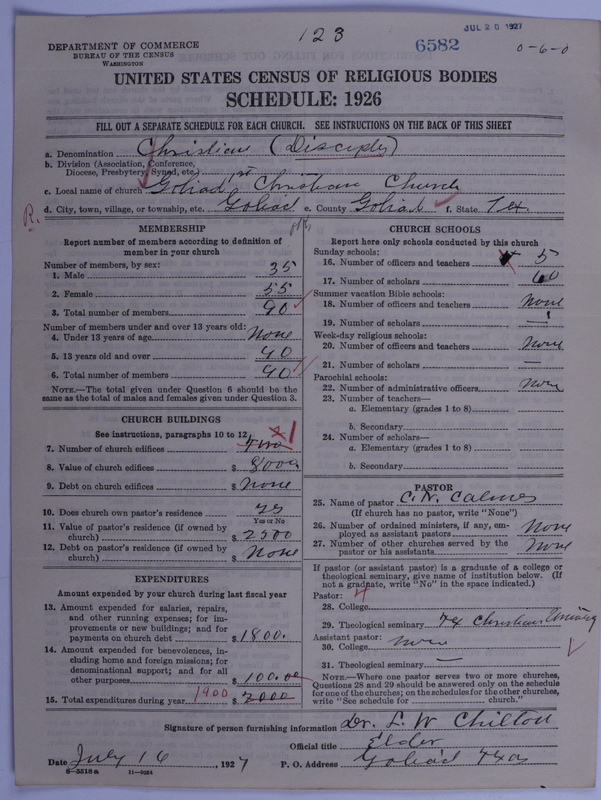 123
JUL 20 1927
DEPARTMENT OF COMMERCE
BUREAU OF THE CENSUS
WASHINGTON
6582
0-6-0
UNITED STATES CENSUS OF RELIGIOUS BODIES
SCHEDULE: 1926
FILL OUT A SEPARATE SCHEDULE FOR EACH CHURCH. SEE INSTRUCTIONS ON THE BACK OF THIS SHEET
a. Denomination Christian (Disciples)
b. Division (Association, Conference,
Diocese, Presbytery, Synod, etc.)
c. Local name of church Goliad 1st Christian Church
d. City, town, village, or township, etc. Goliad e. County Goliad f. State Tex
R.
MEMBERSHIP
Report number of members according to definition of
member in your church
Number of members, by sex:
1. Male 35
2. Female 55
3. Total number of members 90
Number of members under and over 13 years old:
4. Under 13 years of age None
5. 13 years old and over 90
6. Total number of members 90
NOTE.—The total given under Question 6 should be the
same as the total of males and females given under Question 3.
CHURCH BUILDINGS
See instructions, paragraphs 10 to 12
7. Number of church edifices two 1
8. Value of church edifices $ 8000
9. Debt on church edifices $ None
10. Does church own pastor's residence yes
Yes or No
11. Value of pastor's residence (if owned by
church) $ 2500
12. Debt on pastor's residence (if owned by
church) $ None
EXPENDITURES
Amount expended by your church during last fiscal year
13. Amount expended for salaries, repairs,
and other running expenses; for im-
provements or new buildings; and for
payments on church debt $ 1800.
14. Amount expended for benevolences, in-
cluding home and foreign missions; for
denominational support; and for all
other purposes $ 100.00
15. Total expenditures during year 1900 $ 2000
CHURCH SCHOOLS
Report here only schools conducted by this church
Sunday schools:
16. Number of officers and teachers 5
17. Number of scholars 60
Summer vacation Bible schools:
18. Number of officers and teachers None
19. Number of scholars —
Week-day religious schools:
20. Number of officers and teachers None
21. Number of scholars —
Parochial schools:
22. Number of administrative officers None
23. Number of teachers—
a. Elementary (grades 1 to 8)
b. Secondary
24. Number of scholars—
a. Elementary (grades 1 to 8)
b. Secondary
PASTOR
25. Name of pastor C. N. Calmes
(If church has no pastor, write "None")
26. Number of ordained ministers, if any, em-
ployed as assistant pastors None
27. Number of other churches served by the
pastor or his assistants None
If pastor (or assistant pastor) is a graduate of a college or
theological seminary, give name of institution below. (If
not a graduate, write "No" in the space indicated.)
Pastor: 4
28. College
29. Theological seminary Tx Christian University
Assistant pastor:
30. College None
31. Theological seminary —
NOTE.—Where one pastor serves two or more churches,
Questions 28 and 29 should be answered only on the schedule
for one of the churches; on the schedules for the other churches,
write "See schedule for church."
Signature of person furnishing information Dr. L. W Chilton
Official title Elder
Date July 16, 1927 P. O. Address Goliad Texas
8—5518a 11—9094